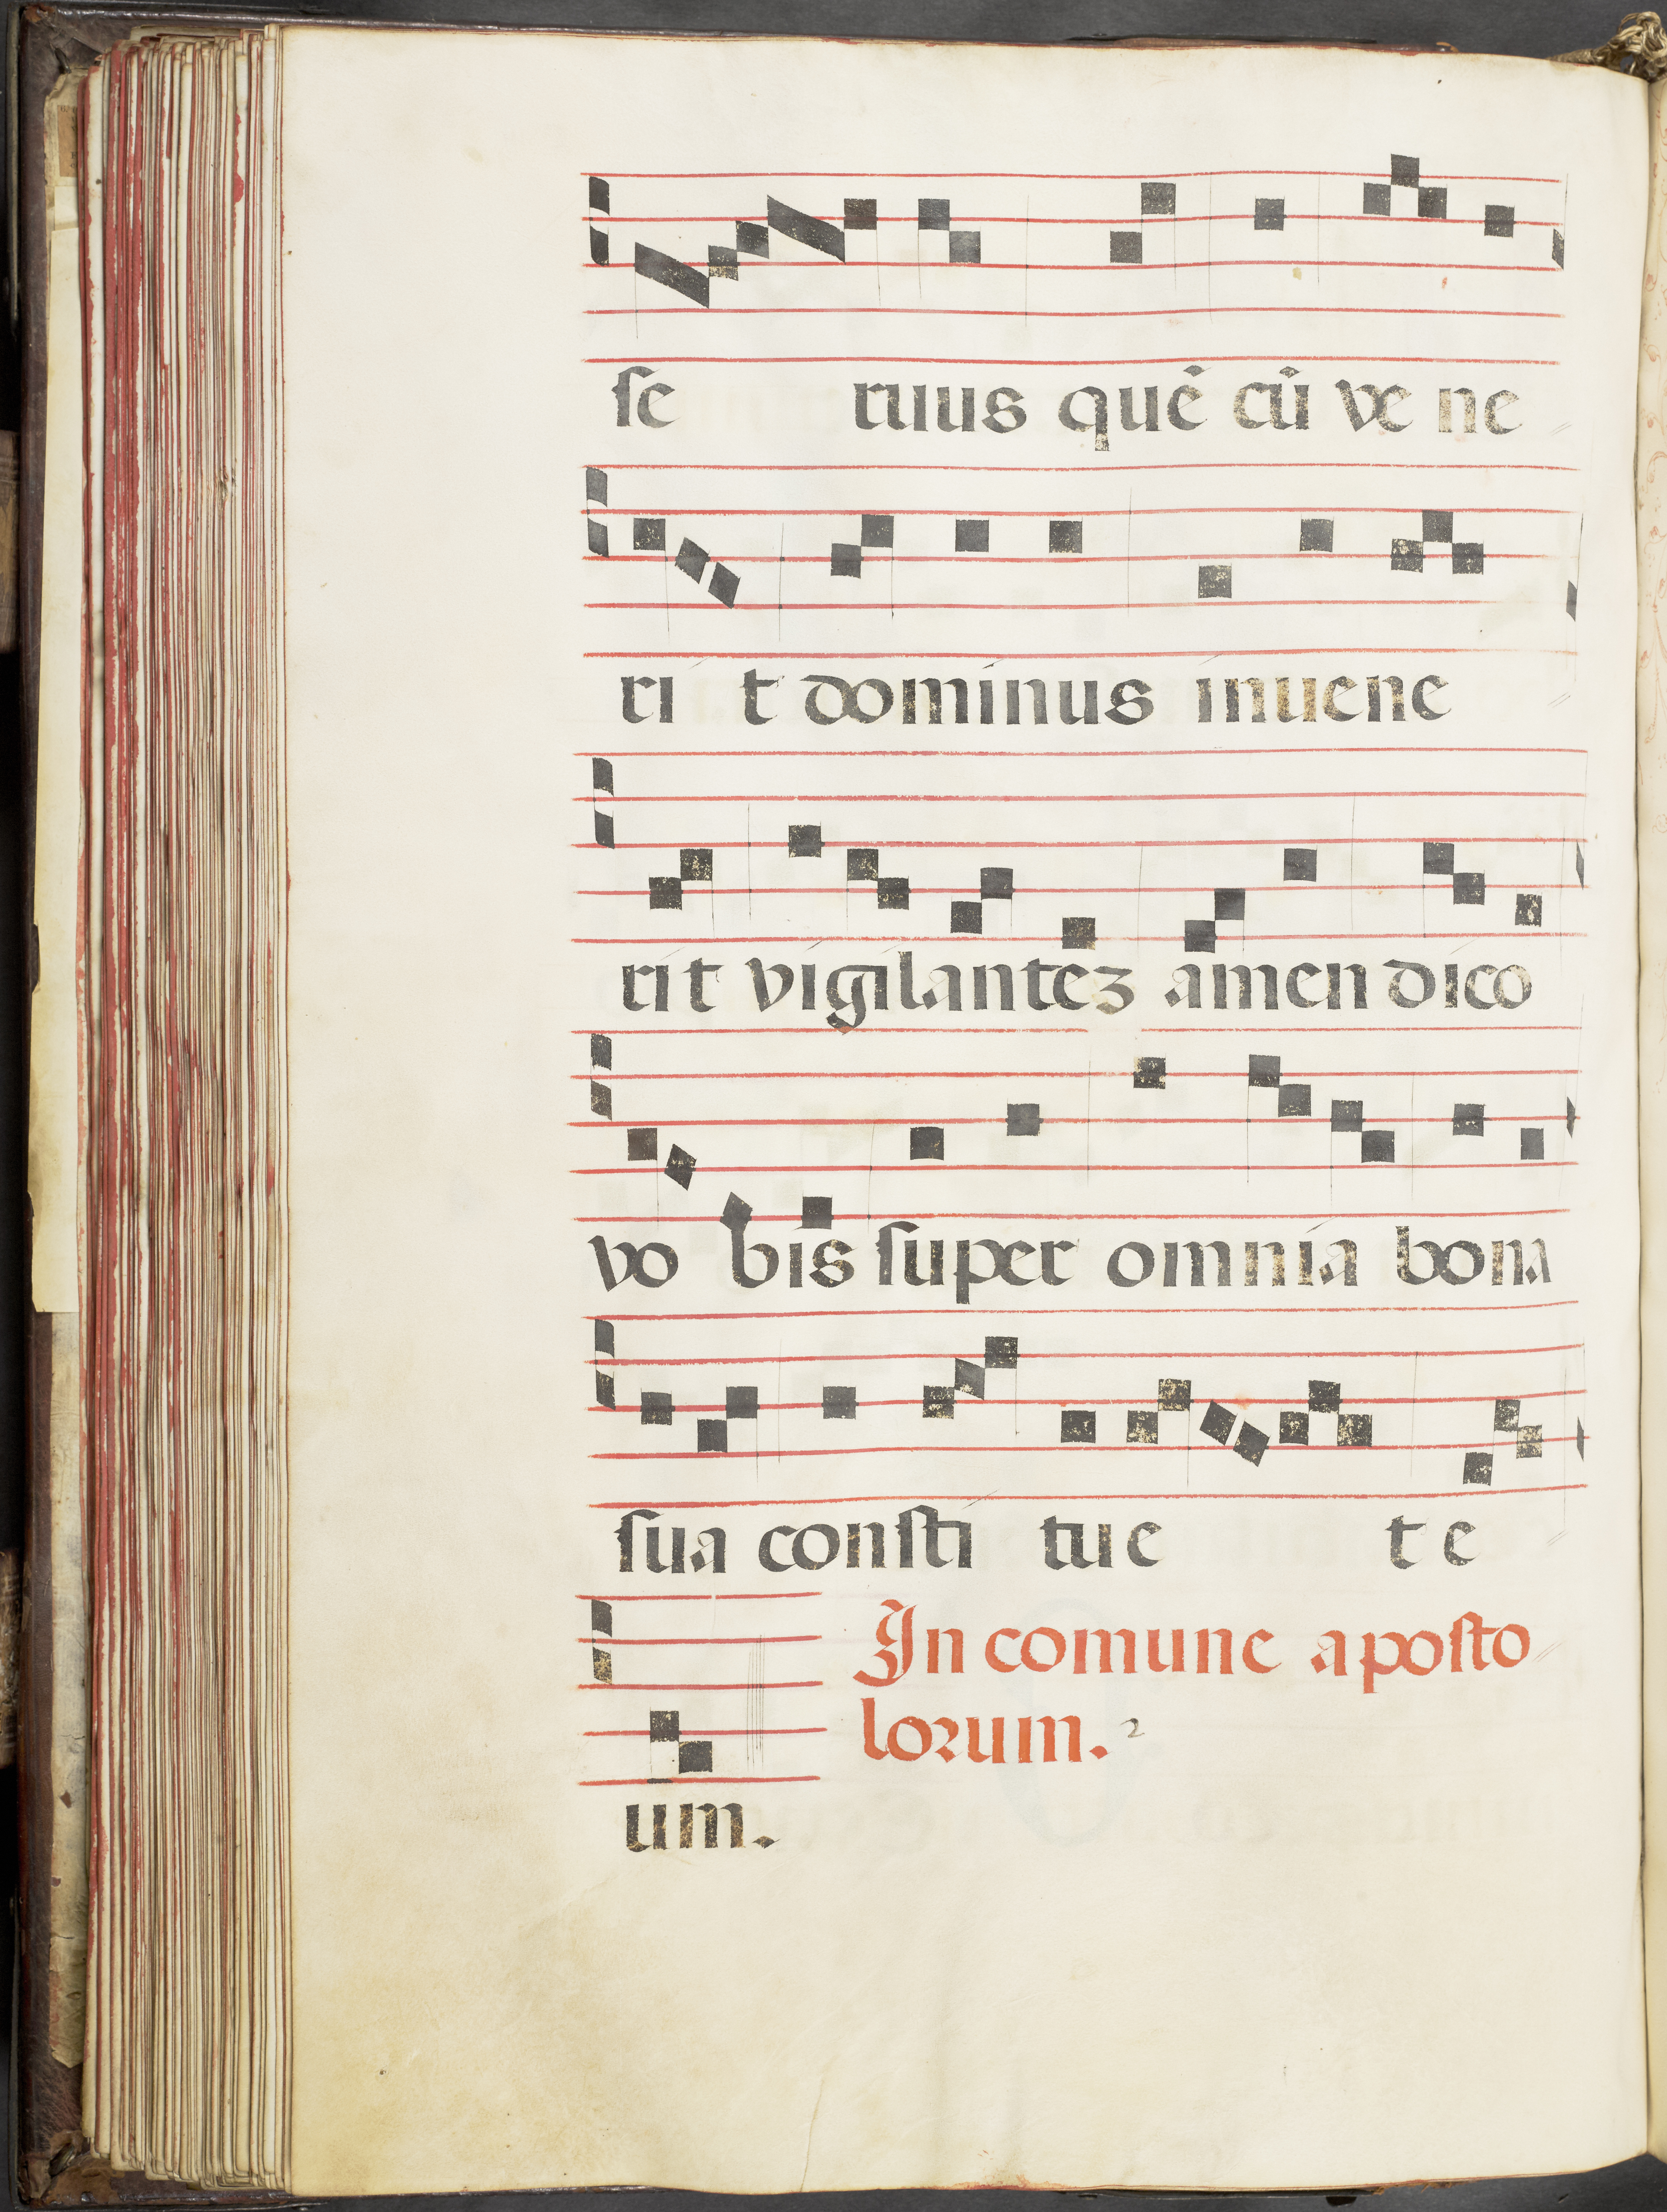 ſe ruus quē cū ve ne
ri t dominus inuene
rit vigilantez amen dico
vo bis ſuper omnia bona
ſua conſti tue t e
In comune apoſto
loꝛum. 2
um.